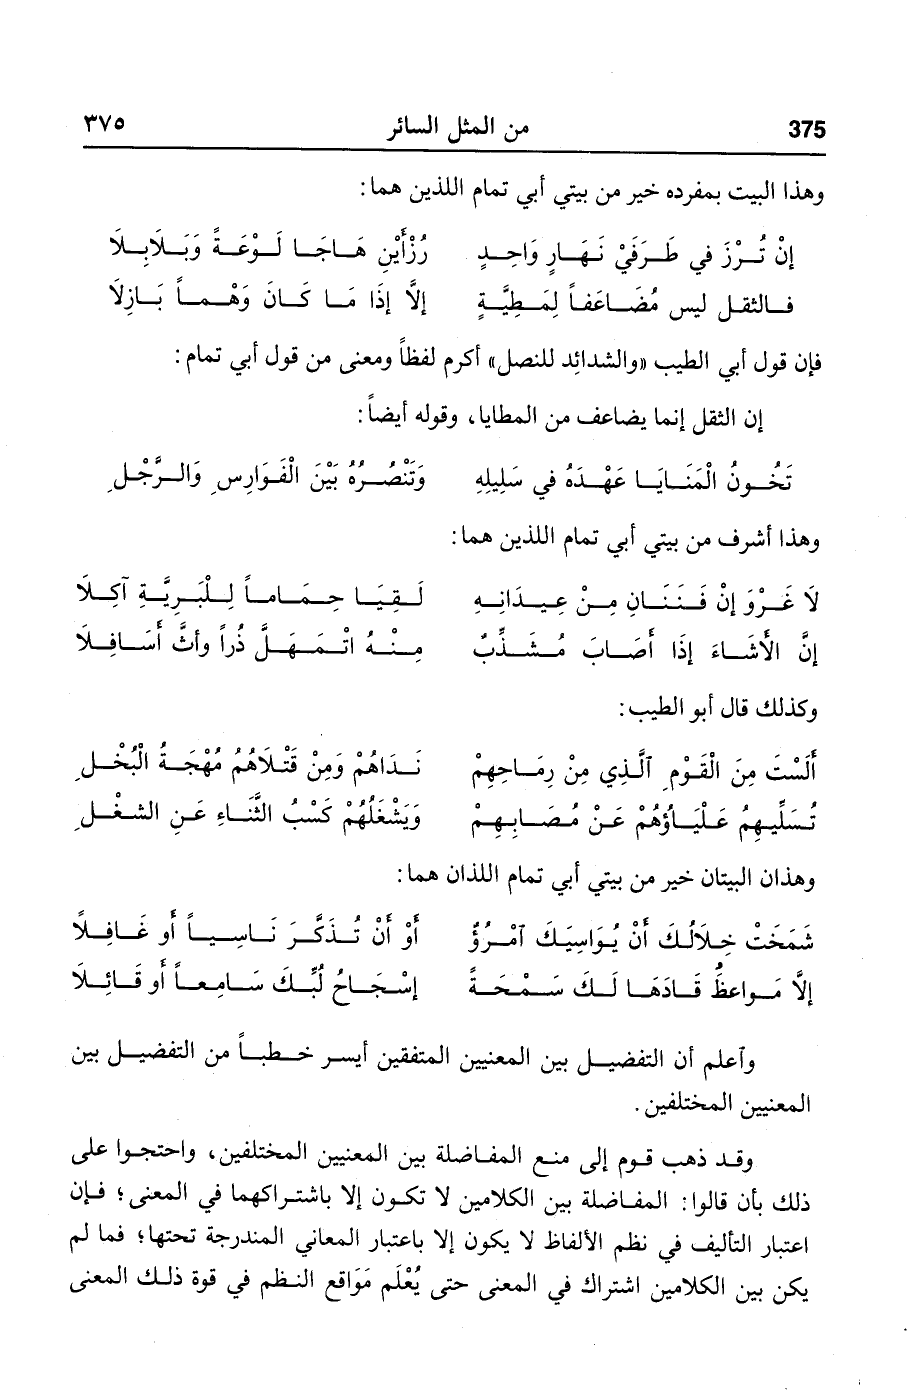 375 من المثل السائر ٣٧٥
وهذا البيت بمفرده خير من بيتي أبي تمام اللذين هما:
إنْ تُرْزَ في طَرَفَيْ نَهَارٍ وَاحِدٍ رُزْأَيْنِ هَاجَا لَوْعَةً وَبَلَابِلَا
فالثقل ليس مُضَاعَفاً لِمَطِيَّةٍ إلَّا إذَا مَا كَانَ وَهْماً بَازِلَا
فإن قول أبي الطيب «والشدائد للنصل» أكرم لفظاً ومعنى من قول أبي تمام:
إن الثقل إنما يضاعف من المطايا، وقوله أيضاً:
تَخُونُ الْمَنَايَا عَهْدَهُ في سَلِيلِهِ وَتَنْصُرُهُ بَيْنَ الْفَوَارِسِ وَالرَّجْلِ
وهذا أشرف من بيتي أبي تمام اللذين هما:
لَا غَرْوَ إنْ فَنَنَانِ مِنْ عِيدَانِهِ لَقِيَا حِمَاماً لِلْبَرِيَّةِ آكِلَا
إنَّ الأَشَاءَ إذَا أَصَابَ مُشَذِّبٌ مِنْهُ اتْمَهَلَّ ذُراً وأَثَّ أَسَافِلَا
وكذلك قال أبو الطيب:
أَلَسْتَ مِنَ الْقَوْمِ ٱلَّذِي مِنْ رِمَاحِهِمْ نَدَاهُمْ وَمِنْ قَتْلَاهُمُ مُهْجَةُ الْبُخْلِ
تُسَلِّيهِمُ عَلْيَاؤُهُمْ عَنْ مُصَابِهِمْ وَيَشْغَلُهُمْ كَسْبُ الثَّنَاءِ عَنِ الشغْلِ
وهذان البيتان خير من بيتي أبي تمام اللذان هما:
شَمَخَتْ خِلَالُكَ أَنْ يُوَاسِيَكَ ٱمْرُؤٌ أَوْ أَنْ تُذَكَّرَ نَاسِياً أَو غَافِلَا
إلَّا مَواعظُ قَادَهَا لَكَ سَمْحَةً إسْجَاحُ لُبِّكَ سَامِعاً أَو قَائِلَا
وٱعلم أن التفضيل بين المعنيين المتفقين أيسر خطباً من التفضيل بين
المعنيين المختلفين.
وقد ذهب قوم إلى منع المفاضلة بين المعنيين المختلفين، واحتجوا على
ذلك بأن قالوا: المفاضلة بين الكلامين لا تكون إلا باشتراكهما في المعنى؛ فإن
اعتبار التأليف في نظم الألفاظ لا يكون إلا باعتبار المعاني المندرجة تحتها؛ فما لم
يكن بين الكلامين اشتراك في المعنى حتى يُعْلَم مَوَاقع النظم في قوة ذلك المعنى